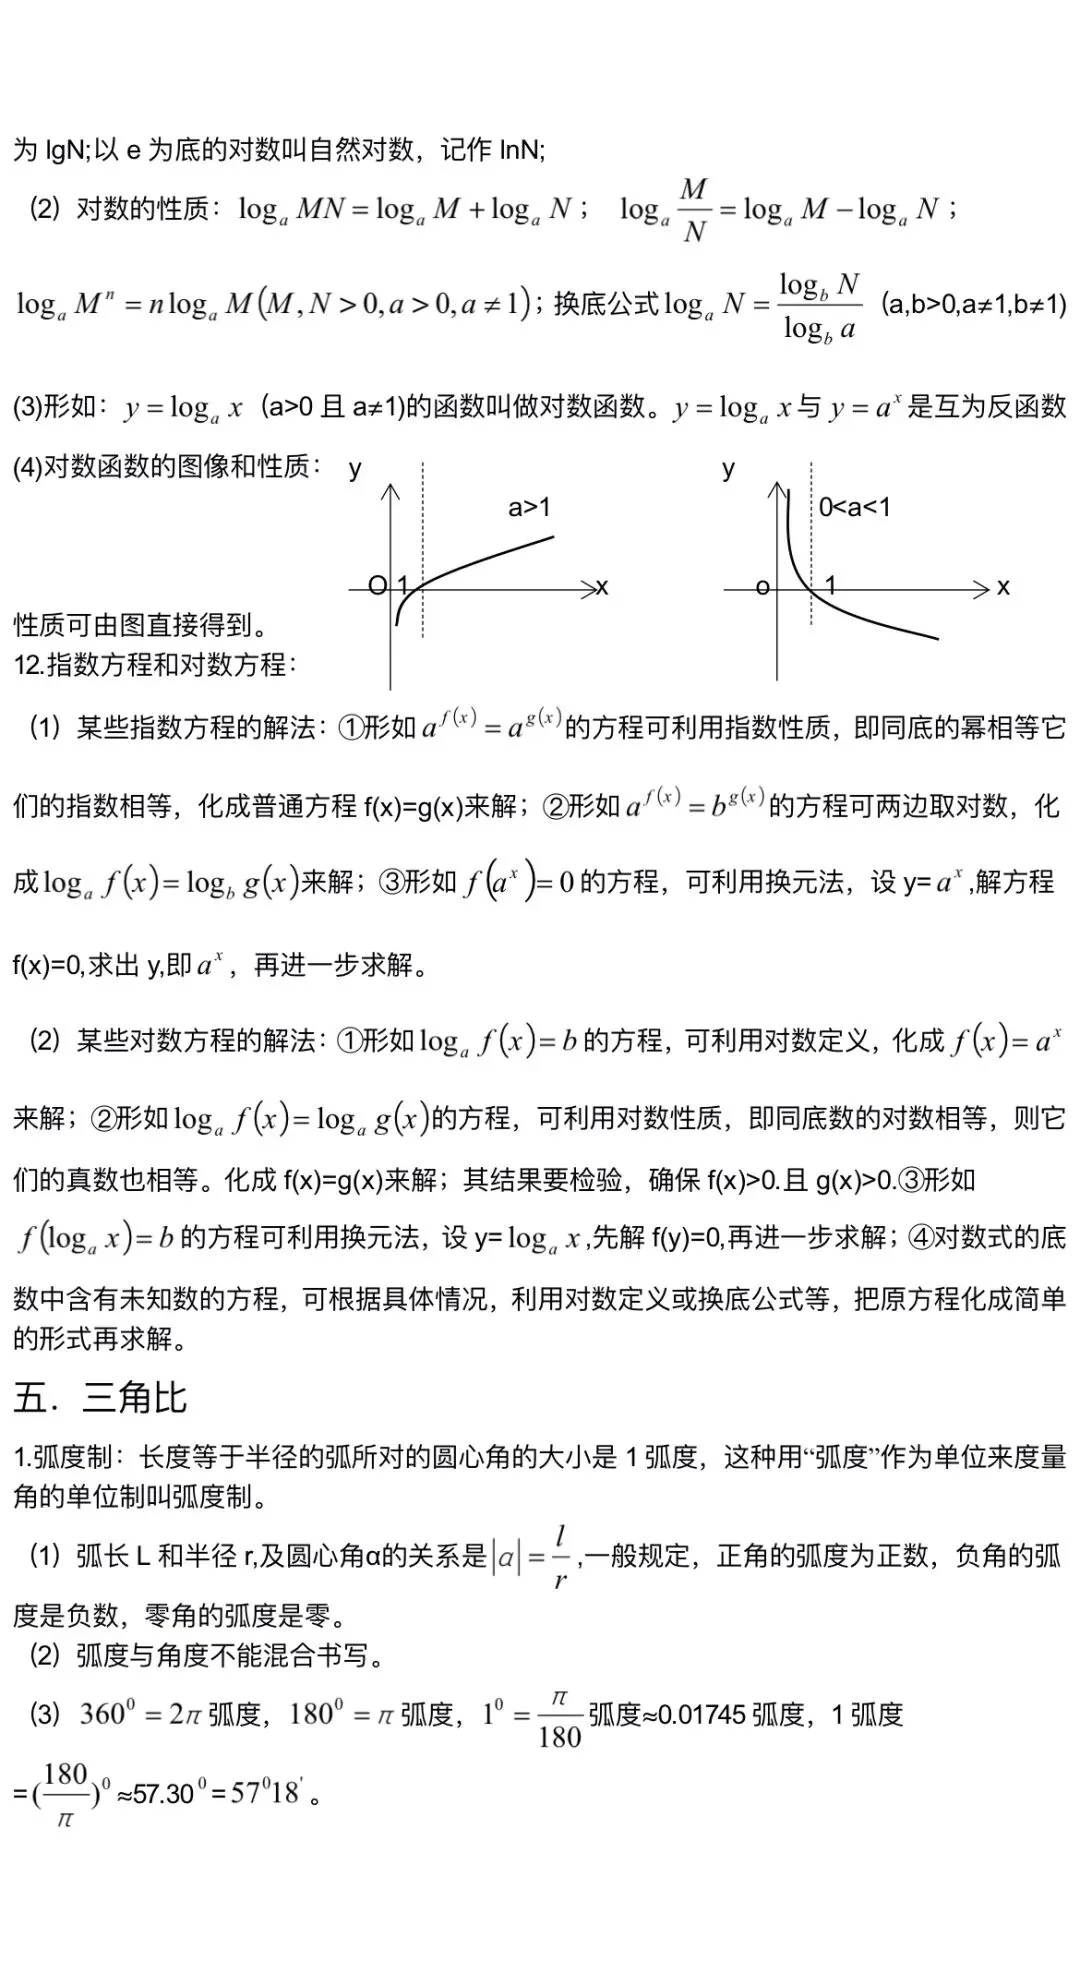 为 lgN;以 e 为底的对数叫自然对数，记作 lnN;
（2）对数的性质：$\log_a MN = \log_a M + \log_a N$； $\log_a \frac{M}{N} = \log_a M - \log_a N$；
$\log_a M^n = n\log_a M(M,N>0,a>0,a\neq 1)$；换底公式$\log_a N = \frac{\log_b N}{\log_b a}$（a,b>0,a≠1,b≠1)
(3)形如：$y=\log_a x$（a>0 且 a≠1)的函数叫做对数函数。$y=\log_a x$与$y=a^x$是互为反函数
(4)对数函数的图像和性质： y y
a>1 0<a<1
O 1 x o 1 x
性质可由图直接得到。
12.指数方程和对数方程：
（1）某些指数方程的解法：①形如$a^{f(x)}=a^{g(x)}$的方程可利用指数性质，即同底的幂相等它
们的指数相等，化成普通方程 f(x)=g(x)来解；②形如$a^{f(x)}=b^{g(x)}$的方程可两边取对数，化
成$\log_a f(x)=\log_b g(x)$来解；③形如$f(a^x)=0$的方程，可利用换元法，设 y=$a^x$,解方程
f(x)=0,求出 y,即$a^x$，再进一步求解。
（2）某些对数方程的解法：①形如$\log_a f(x)=b$的方程，可利用对数定义，化成$f(x)=a^x$
来解；②形如$\log_a f(x)=\log_a g(x)$的方程，可利用对数性质，即同底数的对数相等，则它
们的真数也相等。化成 f(x)=g(x)来解；其结果要检验，确保 f(x)>0.且 g(x)>0.③形如
$f(\log_a x)=b$的方程可利用换元法，设 y=$\log_a x$,先解 f(y)=0,再进一步求解；④对数式的底
数中含有未知数的方程，可根据具体情况，利用对数定义或换底公式等，把原方程化成简单
的形式再求解。
五．三角比
1.弧度制：长度等于半径的弧所对的圆心角的大小是 1 弧度，这种用“弧度”作为单位来度量
角的单位制叫弧度制。
（1）弧长 L 和半径 r,及圆心角α的关系是$|\alpha|=\frac{l}{r}$,一般规定，正角的弧度为正数，负角的弧
度是负数，零角的弧度是零。
（2）弧度与角度不能混合书写。
（3）$360^0=2\pi$弧度，$180^0=\pi$弧度，$1^0=\frac{\pi}{180}$弧度≈0.01745 弧度，1 弧度
=$(\frac{180}{\pi})^0$≈57.30$^0$=$57^0 18^{'}$。